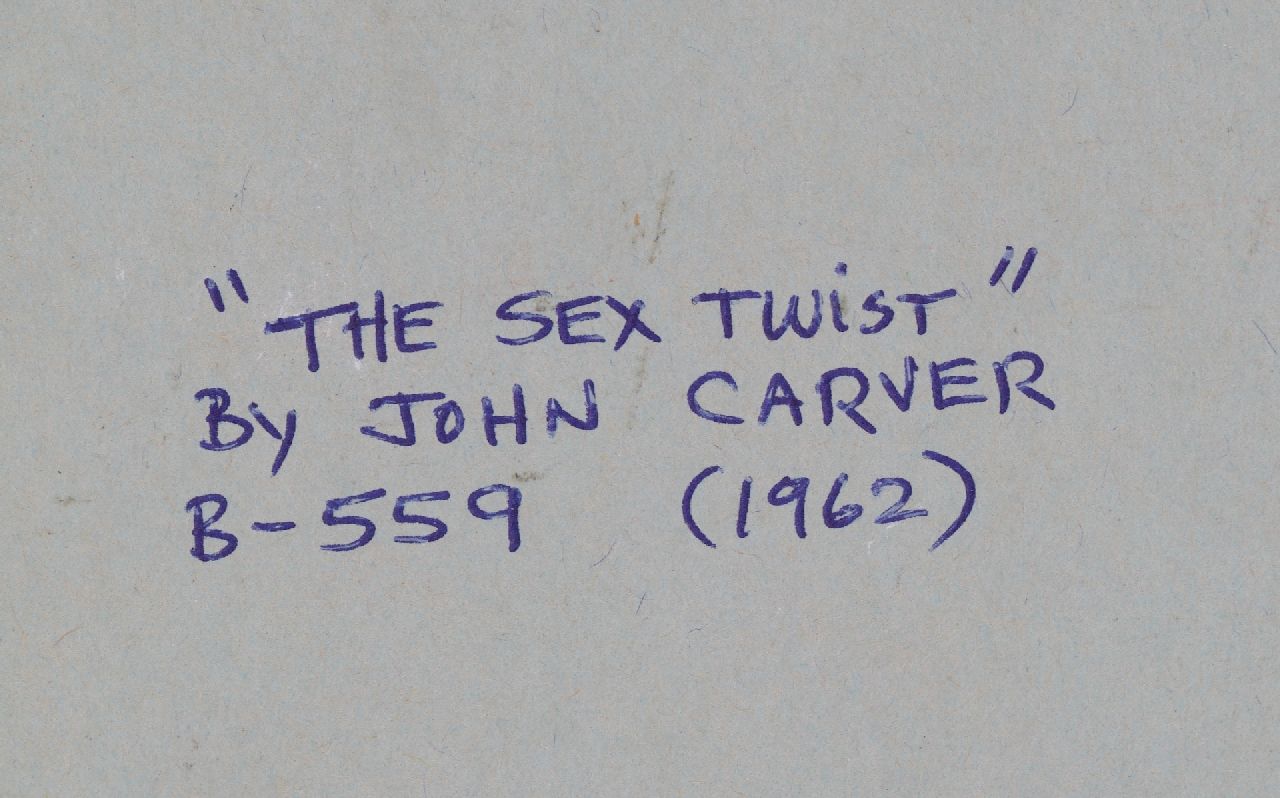 "THE SEX TWiST"
By JOHN CARVER
B-559 (1962)